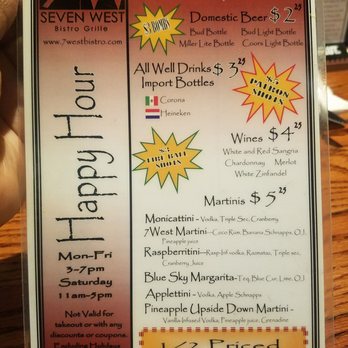 SEVEN WEST
Bistro Grille
www.7westbistro.com
Happy Hour
Mon-Fri
3-7pm
Saturday
11am-5pm
Not Valid for
takeout or with any
discounts or coupons.
Excluding Holidays
$3 BOMBS
Domestic Beer $2 25
Bud Bottle Bud Light Bottle
Miller Lite Bottle Coors Light Bottle
All Well Drinks $3 25
Import Bottles
Corona
Heineken
$5
PATRON
SHOTS
$5
FIRE BALL
SHOTS
Wines $4 25
White and Red Sangria
Chardonnay Merlot
White Zinfandel
Martinis $5 25
Monicattini - Vodka, Triple Sec, Cranberry
7West Martini - Coco Rum, Banana Schnapps, O.J,
Pineapple juice
Raspberritini - Rasp-Inf vodka, Razmatazz, Triple sec,
Cranberry Juice
Blue Sky Margarita - Teq, Blue Cur, Lime, OJ
Applettini - Vodka, Apple Schnapps
Pineapple Upside Down Martini -
Vanilla Infused Vodka, Pineapple juice, Grenadine
1/2 Priced